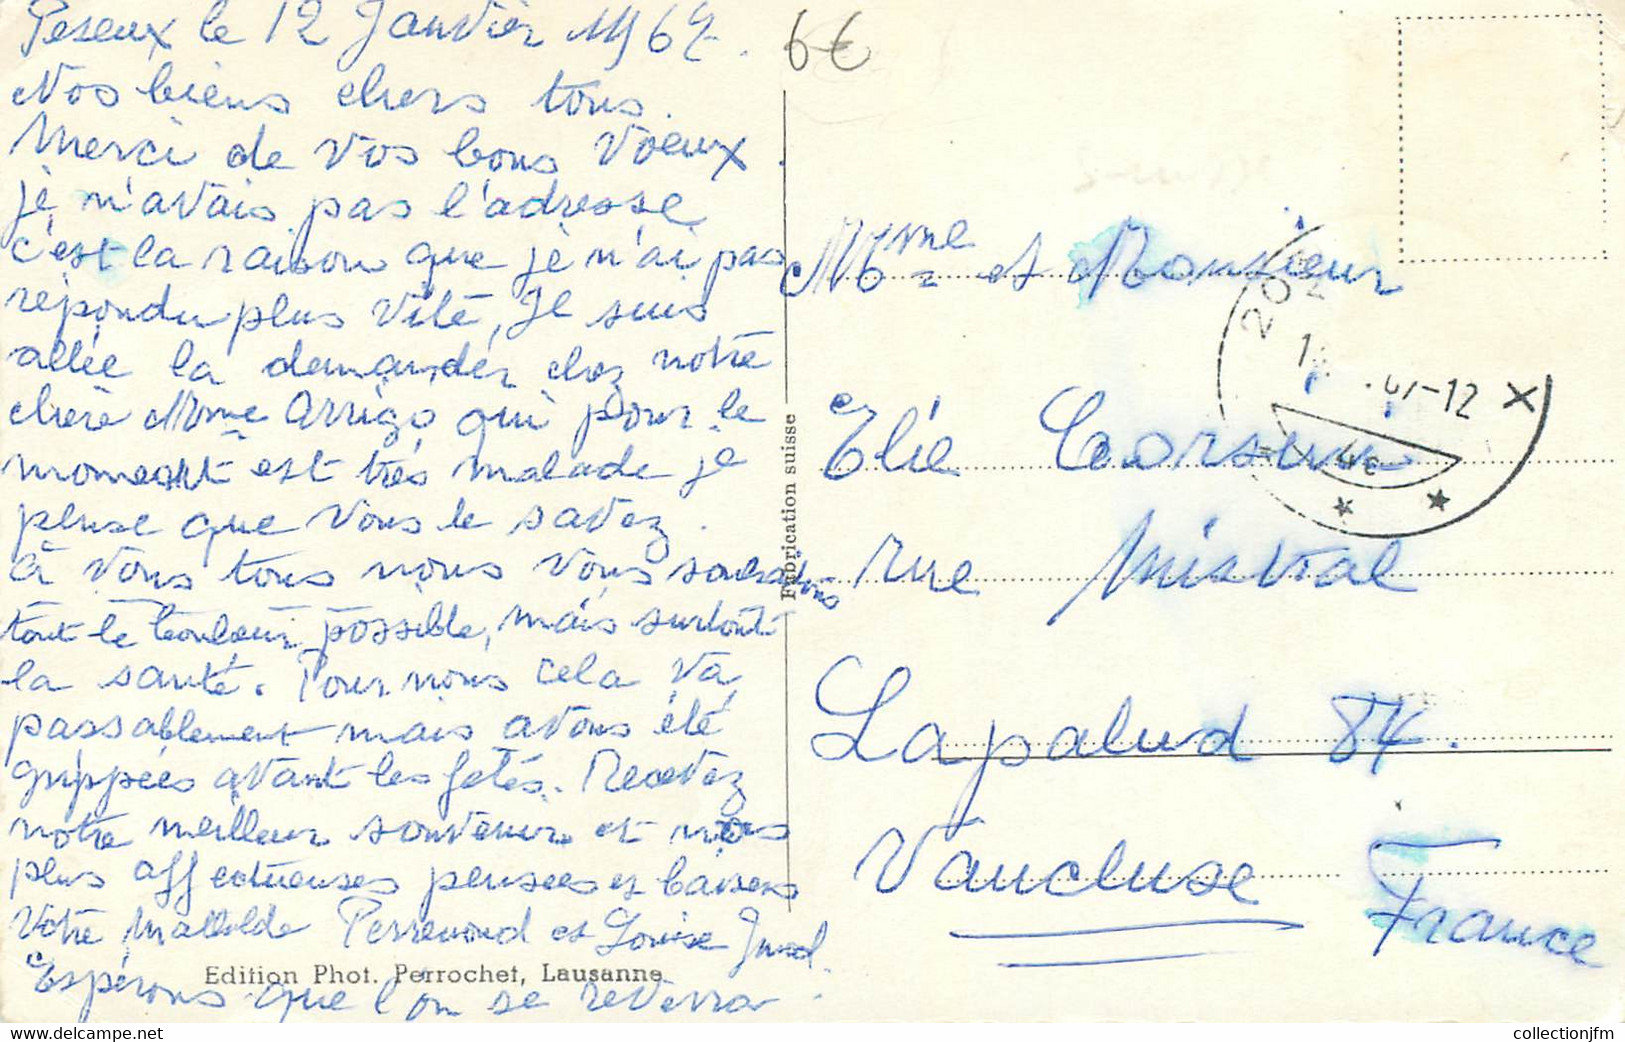 Peseux le 12 Janvier 1967.
Nos biens chers tous.
Merci de vos bons Voeux.
je n'avais pas l'adresse
c'est la raison que je n'ai pas
répondu plus vite, Je suis
allée la demander chez notre
chère Mme Arrigo qui pour le
moment est très malade je
pense que vous le savez.
à vous tous nous vous souhaitons
tout le bonheur possible, mais surtout
la santé. Pour nous cela va
passablement mais avons été
grippées avant les fêtes. Recevez
notre meilleur souvenir et nos
plus affectueuses pensées et baisers
Votre Mathilde Perrenoud et Louise
Espérons que l'on se reverra.
Edition Phot. Perrochet, Lausanne
Fabrication suisse
6€
Mme et Monsieur
Elie
rue Mistral
Lapalud 84.
Vaucluse
France
-12
collectionjfm